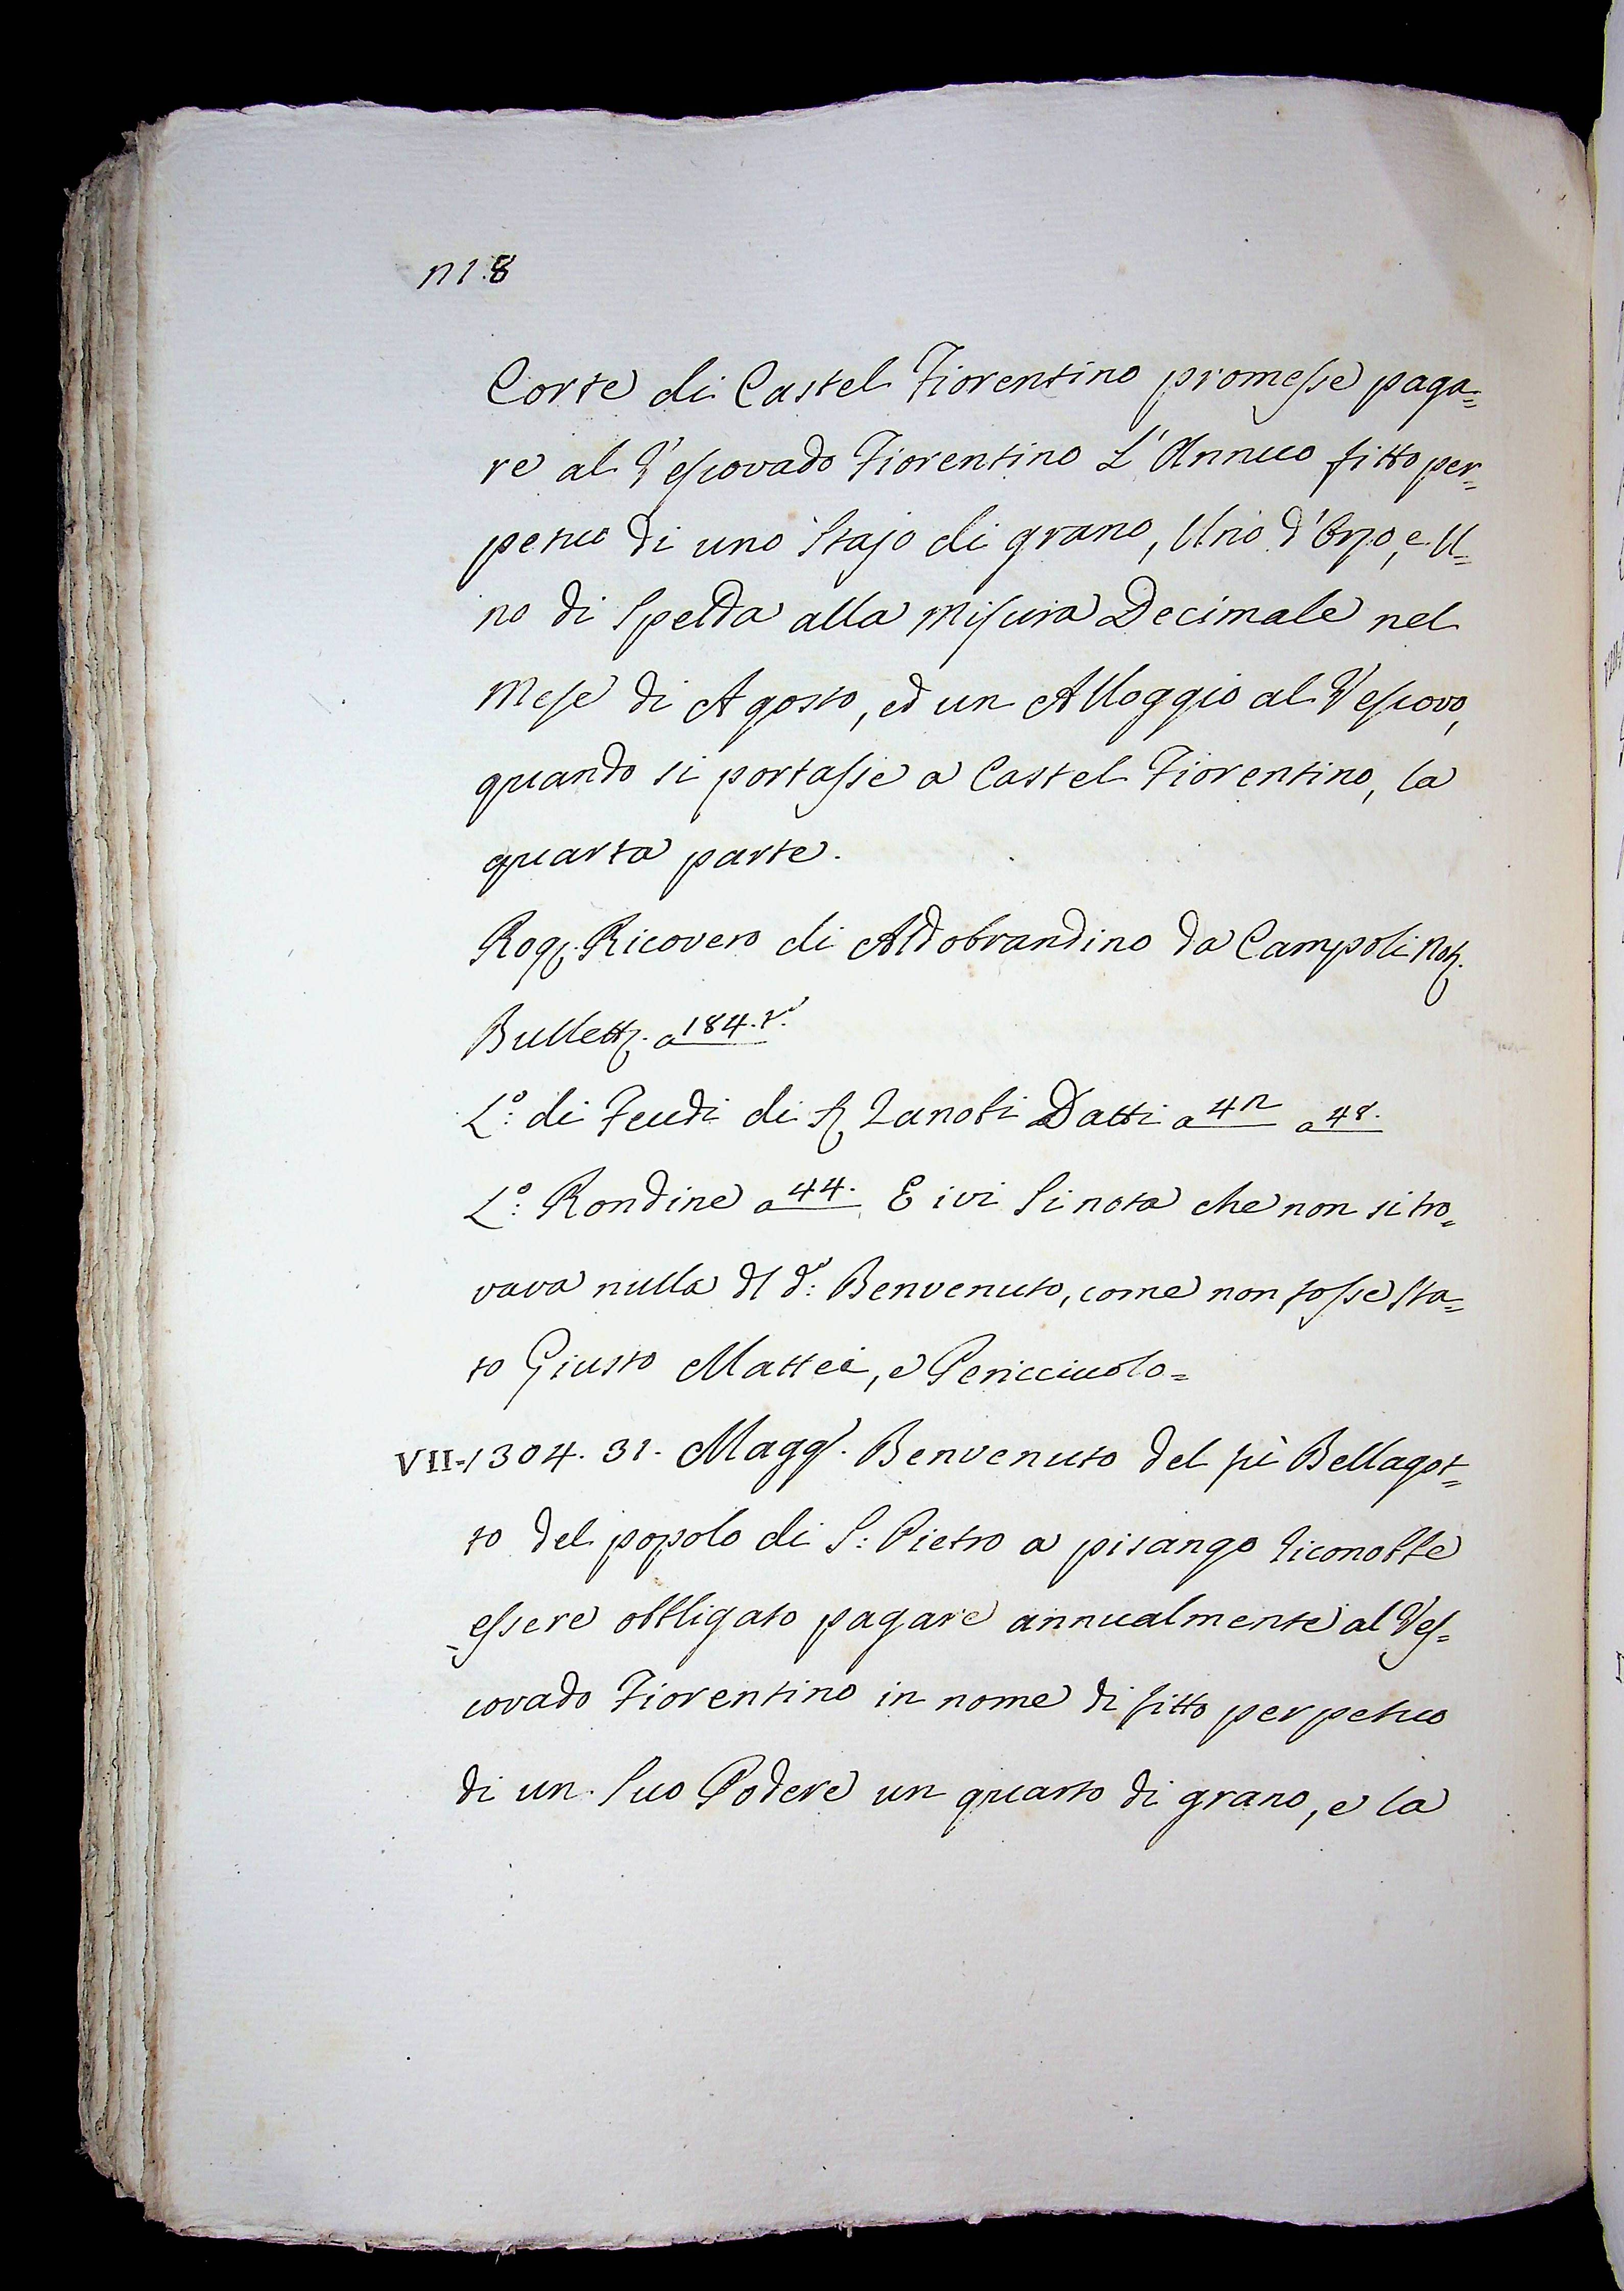 718
Corte di Castel Fiorentino promesse paga=
re al Vescovado Fiorentino L'Annuo fitto per=
petuo di uno Stajo di grano, Uno d'Orzo, e U=
no di Spelda alla Misura Decimale nel
Mese di Agosto, ed un Alloggio al Vescovo,
quando si portasse a Castel Fiorentino, la
quarta parte.
Rog. Ricovero di Aldobrandino da Campoli Not.
Bullett. a 184. t.º
L.º di Feudi di Zanobi Datti a 47 a 48.
L.º Rondine a 44. E ivi Si nota che non si tro=
vava nulla dl d.º Benvenuto, come non fosse Sta=
to Giusto Mattei, e Pericciuolo=
VII=1304. 31. Magg. Benvenuto del fù Bellagot=
to del popolo di S: Pietro a pisango riconobbe
essere obbligato pagare annualmente al Ves=
covado Fiorentino in nome di fitto perpetuo
di un Suo Podere un quarto di grano, e la